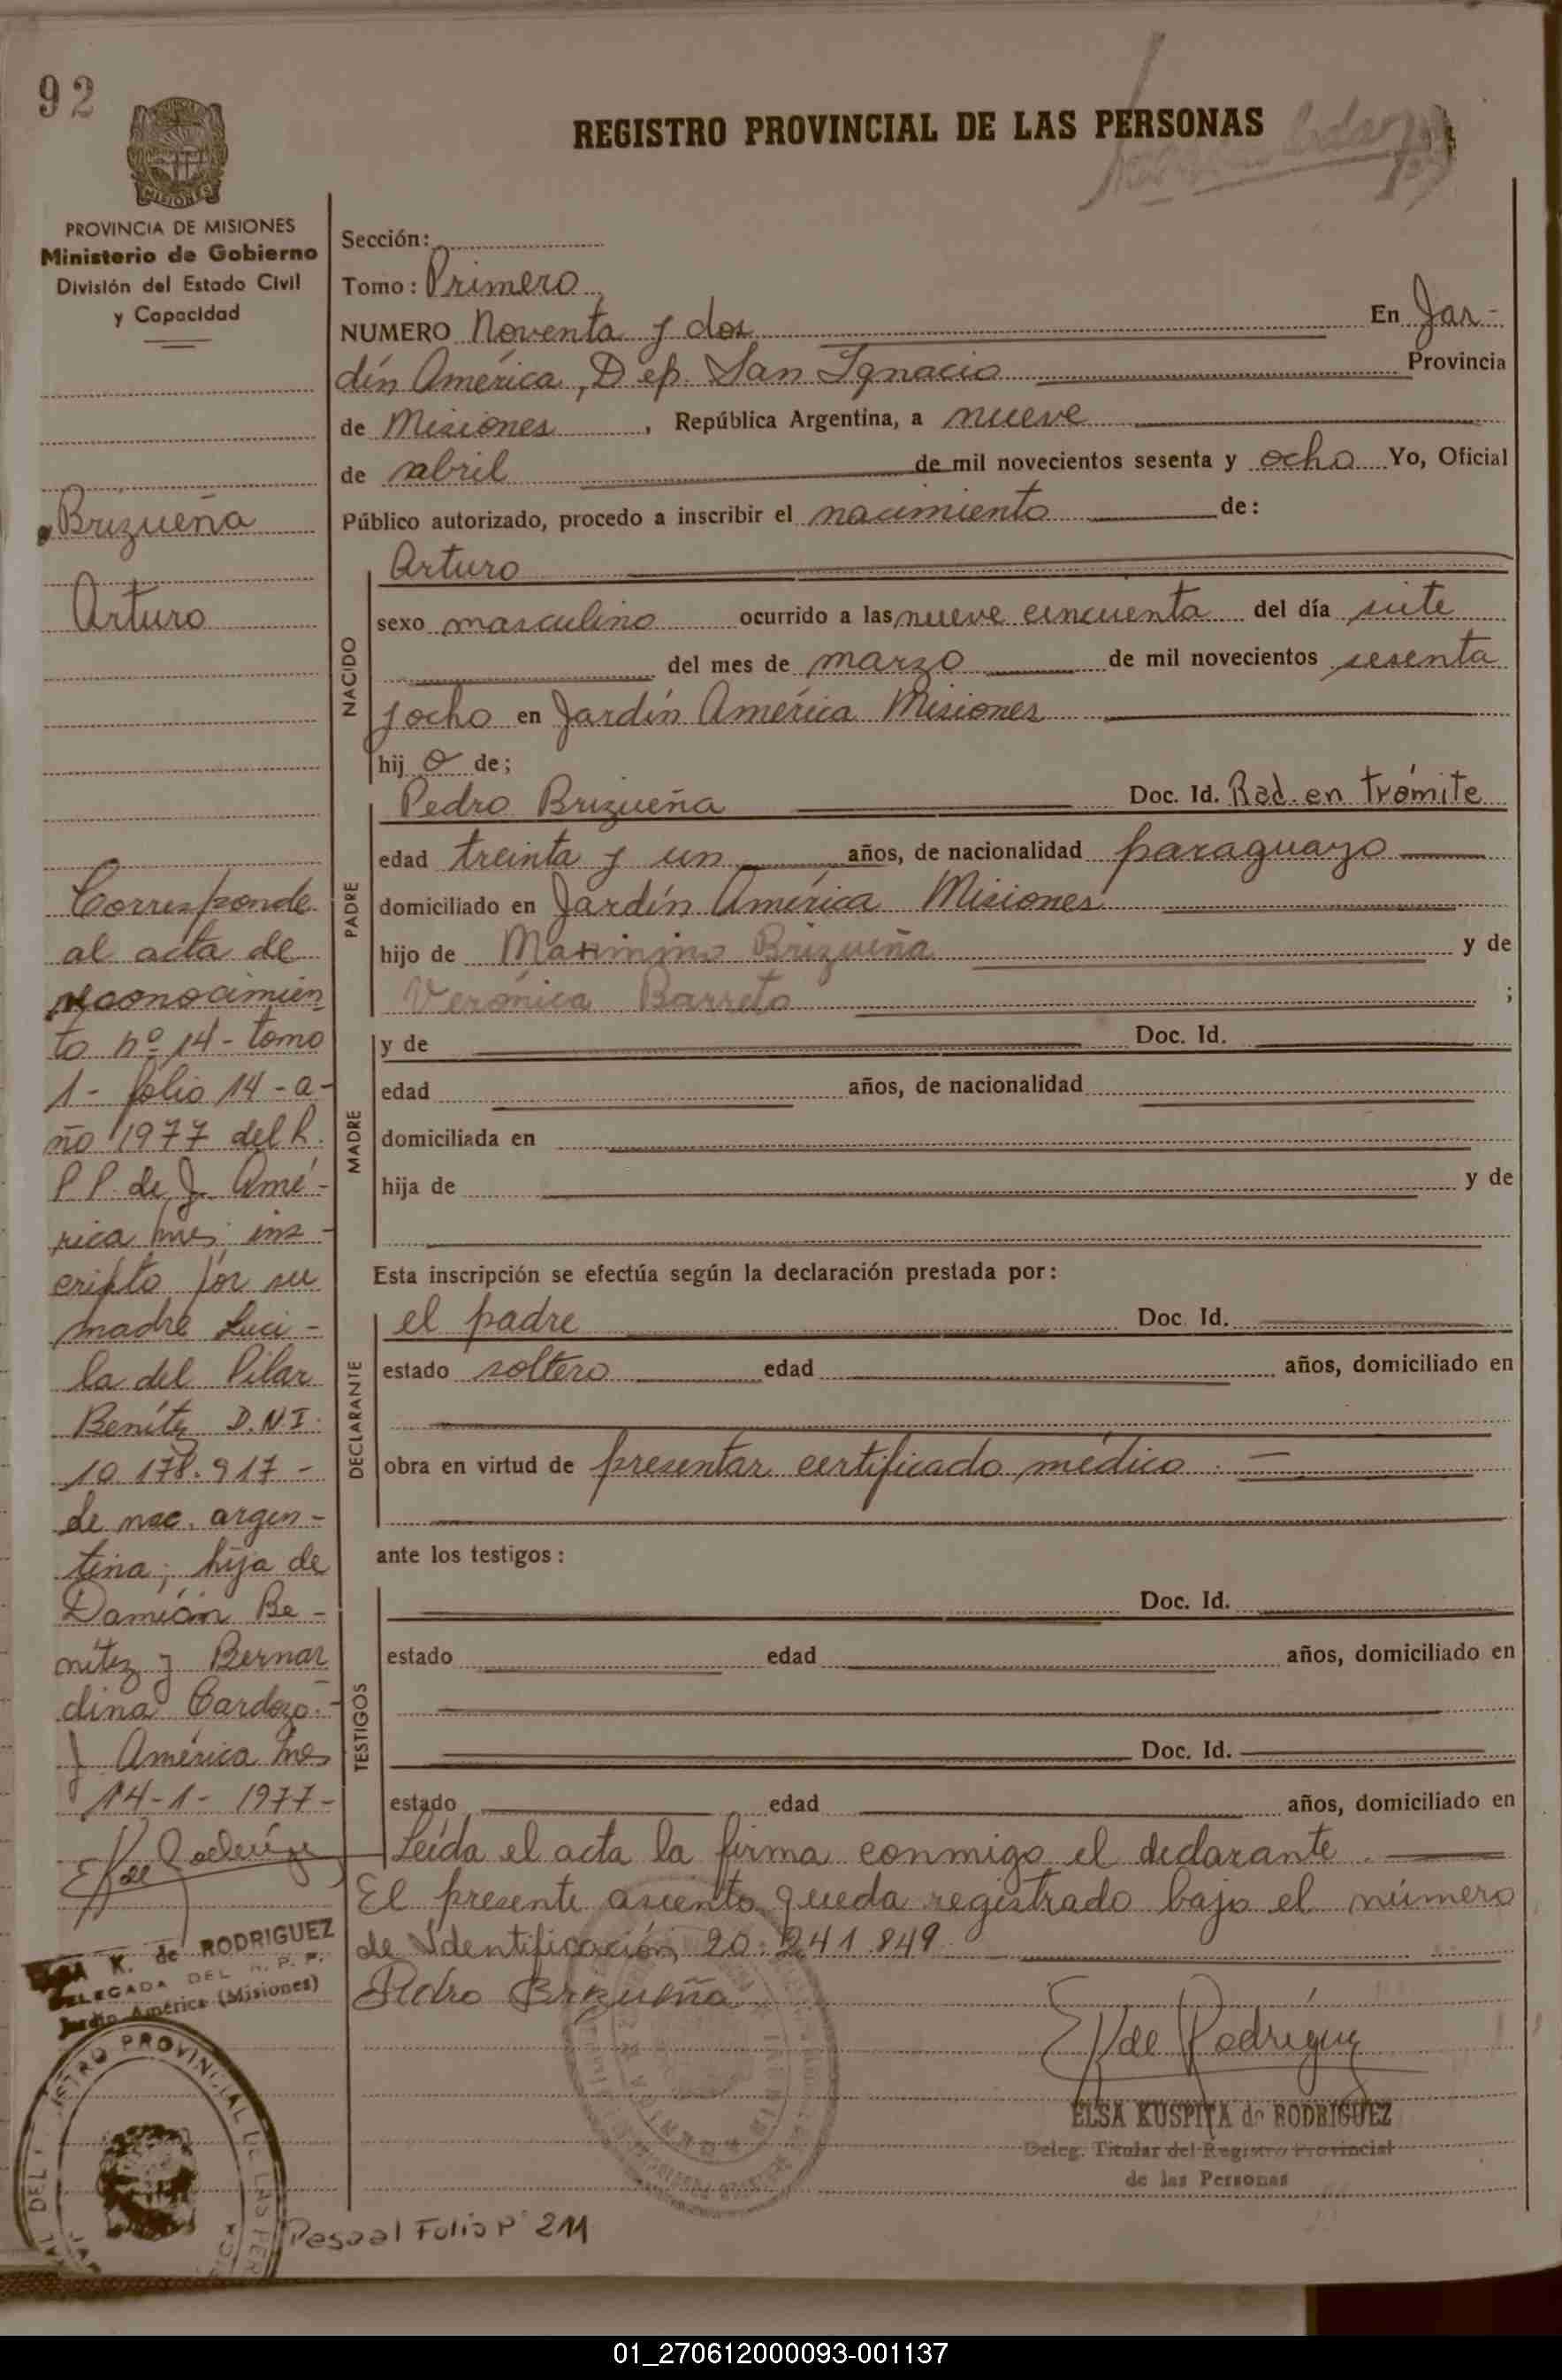 92
REGISTRO PROVINCIAL DE LAS PERSONAS
MISIONES
PROVINCIA DE MISIONES
Ministerio de Gobierno
División del Estado Civil
y Capacidad
Brizueña
Arturo
Corresponde
al acta de
reconocimien
to nº 14 - tomo
1 - folio 14 - a-
ño 1977 del R.
P P. de J. Amé-
rica Mnes ins-
cripto por su
madre Luci-
la del Pilar
Benítez D.N.I.
10.178.917 -
de nac. argen-
tina; hija de
Damián Be-
nítez y Bernar
dina Cardozo.-
J. América Mnes
14-1-1977-
E K de Rodríguez
ELSA K. de RODRIGUEZ
DELEGADA DEL R. P. P.
Jardín América (Misiones)
Sección:
Tomo: Primero
NUMERO Noventa y dos En Jar-
dín América, Dep. San Ignacio Provincia
de Misiones, República Argentina, a nueve
de abril de mil novecientos sesenta y ocho Yo, Oficial
Público autorizado, procedo a inscribir el nacimiento de:
NACIDO
Arturo
sexo masculino ocurrido a las nueve cincuenta del día siete
del mes de marzo de mil novecientos sesenta
y ocho en Jardín América Misiones
hij o de;
PADRE
Pedro Brizueña Doc. Id. Rad. en Trámite
edad treinta y un años, de nacionalidad paraguayo
domiciliado en Jardín América Misiones
hijo de Maximino Brizueña y de
Verónica Barreto ;
MADRE
y de Doc. Id.
edad años, de nacionalidad
domiciliada en
hija de y de
Esta inscripción se efectúa según la declaración prestada por:
DECLARANTE
el padre Doc. Id.
estado soltero edad años, domiciliado en
obra en virtud de presentar certificado médico.
ante los testigos:
TESTIGOS
Doc. Id.
estado edad años, domiciliado en
Doc. Id.
estado edad años, domiciliado en
Leída el acta la firma conmigo el declarante.
El presente asiento queda registrado bajo el número
de Identificación 20.241.849
Pedro Brizueña
E K de Rodríguez
ELSA KUSPITA de RODRIGUEZ
Deleg. Titular del Registro Provincial
de las Personas
Folio Nº 211
01_270612000093-001137